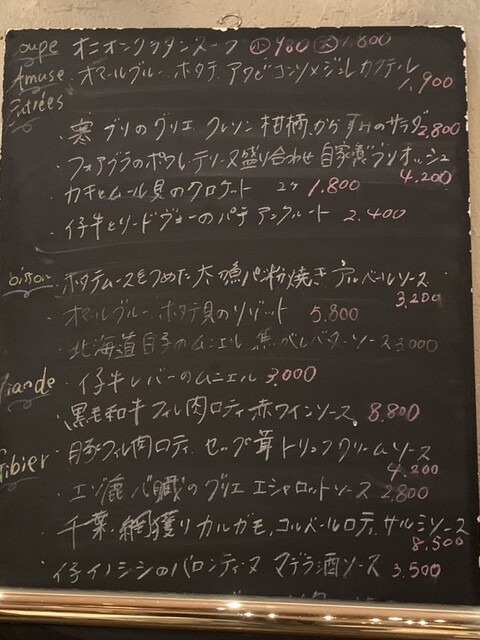 oupe オニオングラタンスープ 小 900 大 1,800
Amuse オマールブルー ホタテ アワビ コンソメジュレカクテル
1,900
Entrées
・寒ブリのグリエ クレソン 柑橘 からすみのサラダ 2,800
・フォアグラのポワレ テリーヌ盛り合わせ 自家製ブリオッシュ
4,200
・カキとムール貝のクロケット 2ケ 1,800
・仔牛とリードヴォーのパテアンクルート 2,400
oisson ・ホタテムースをつめた 魚 パン粉焼き アルベールソース
3,200
・オマールブルー ホタテ貝のリゾット 5,800
・北海道白子のムニエル 焦がしバターソース 3,000
iande ・仔牛レバーのムニエル 3,000
・黒毛和牛フィレ肉ロティ 赤ワインソース 8,800
・豚フィレ肉ロティ セップ茸トリュフクリームソース
4,200
ibier ・エゾ鹿 心臓のグリエ エシャロットソース 2,800
・千葉 網獲りカルガモ、コルベールロティ サルミソース
8,500
・仔イノシシのバロンティーヌ マデラ酒ソース 3,500